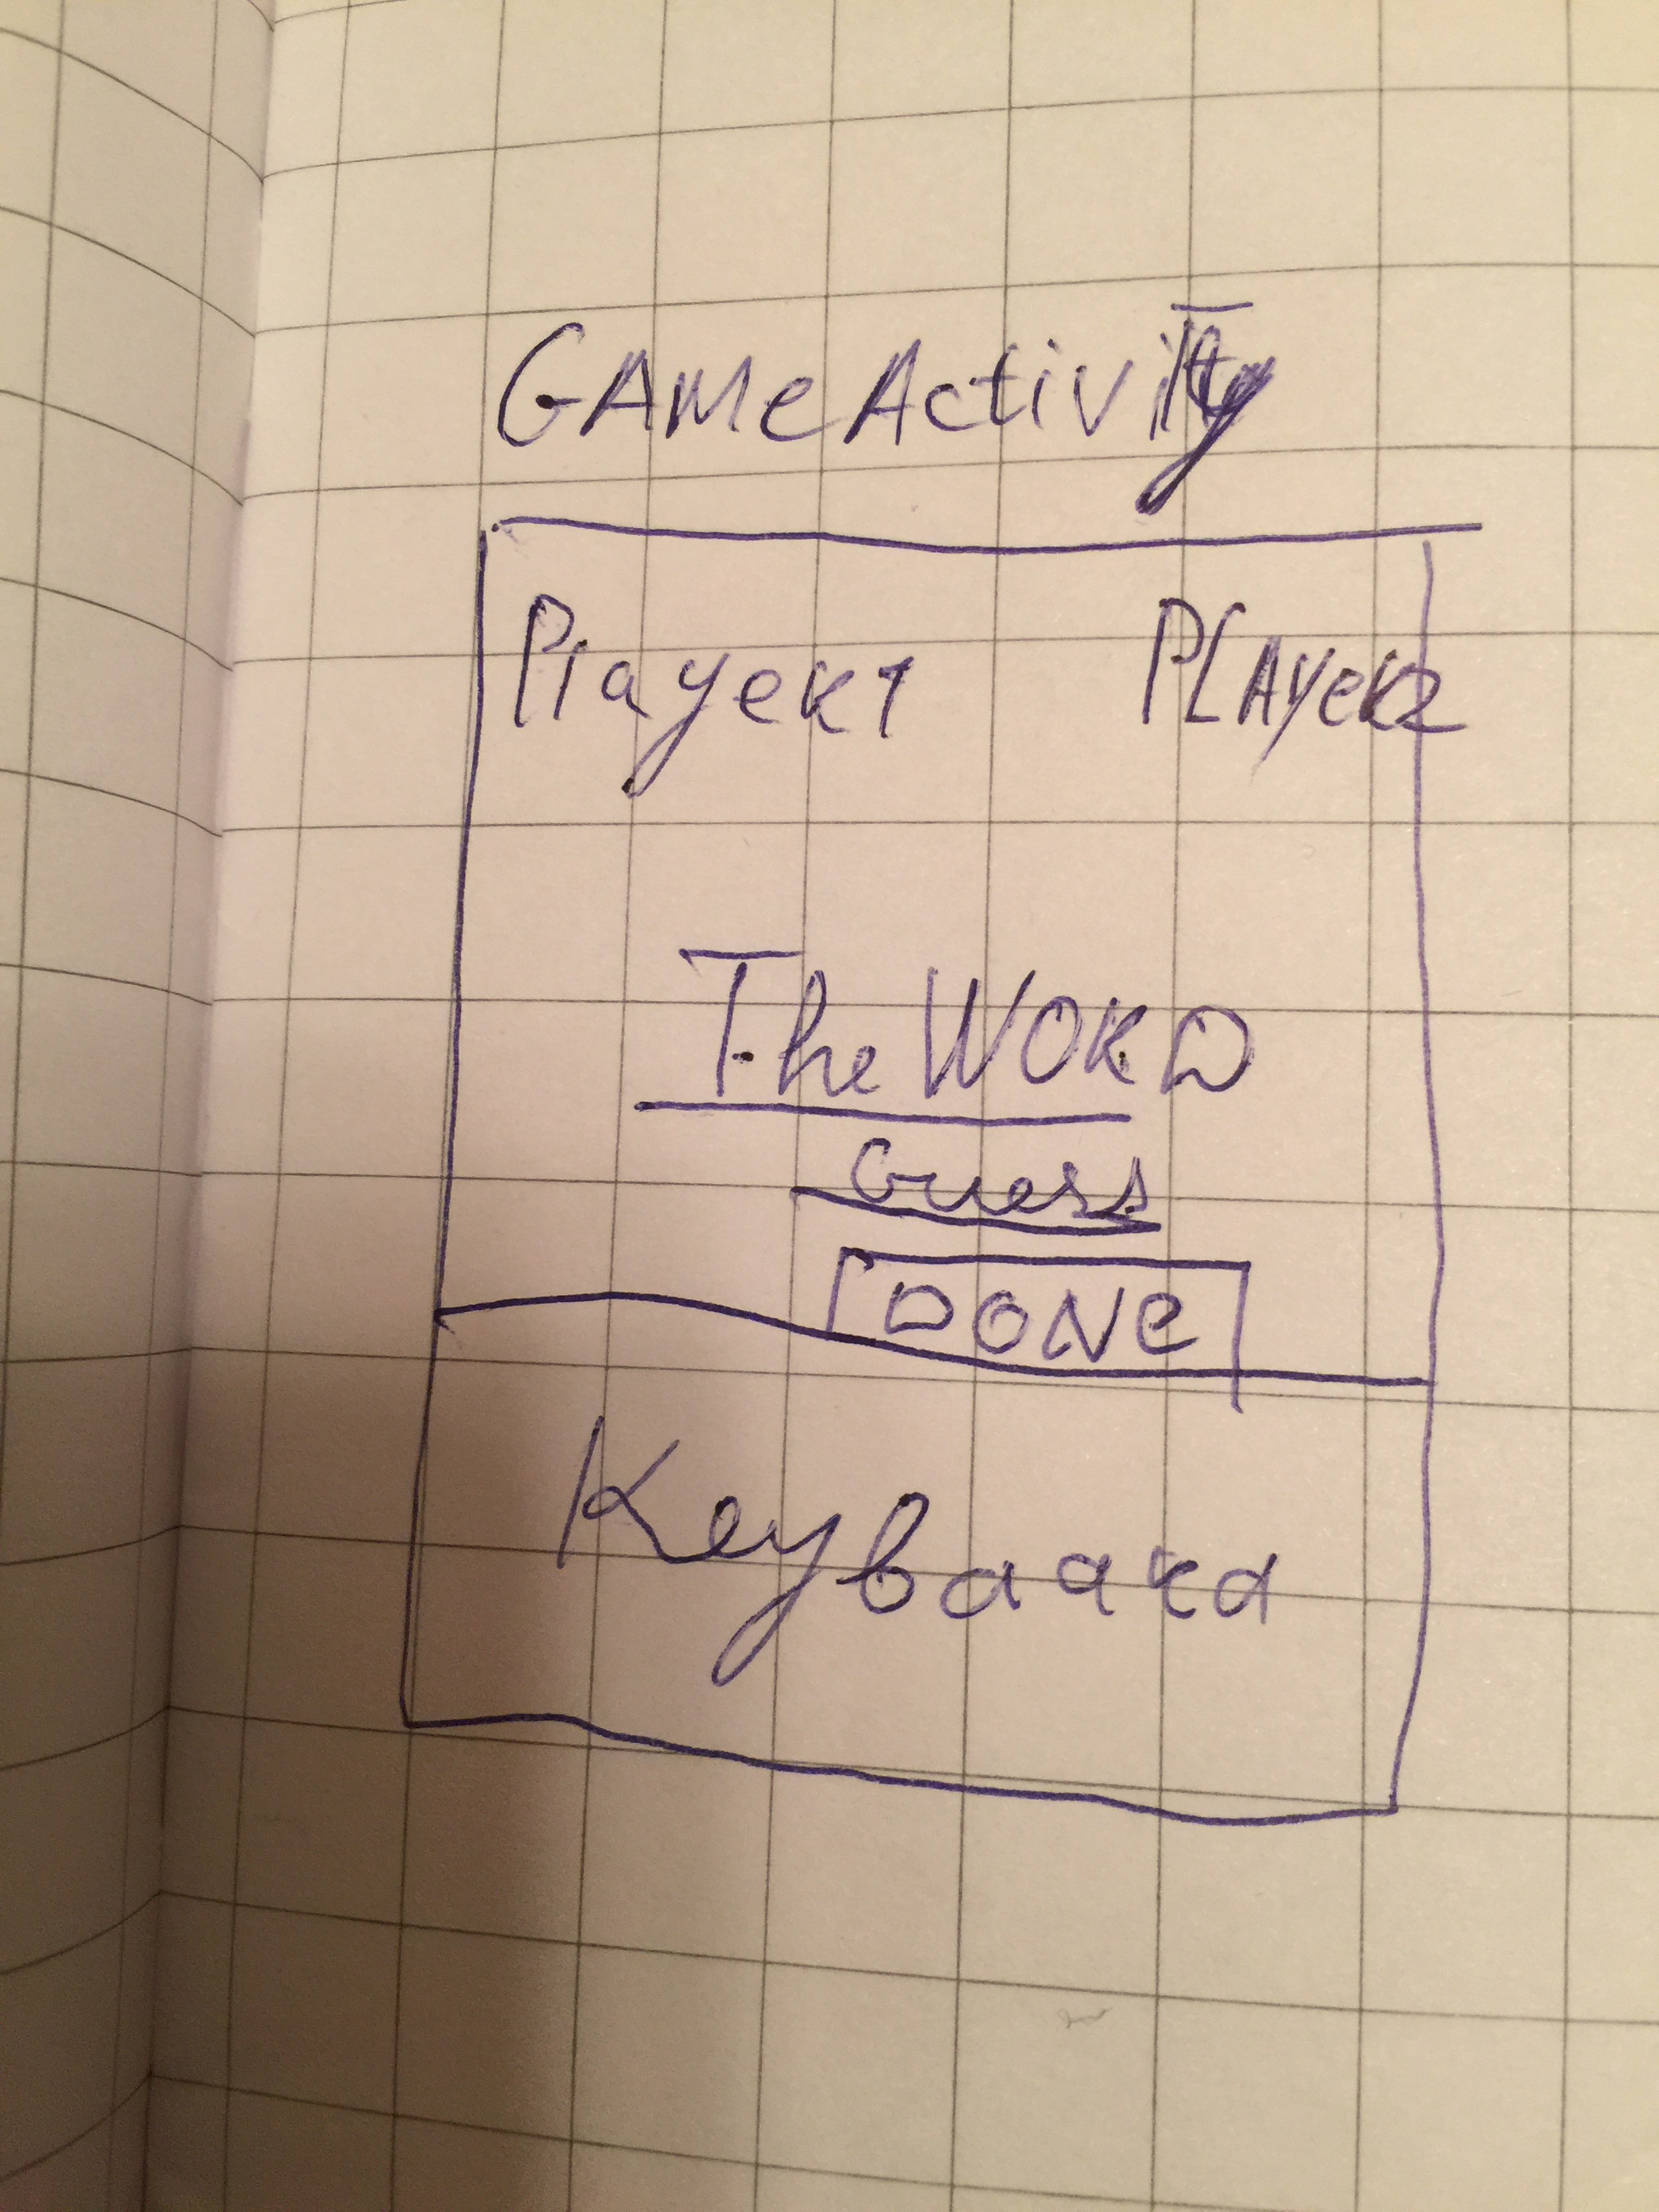 GAMeActivity
Player1 PLAyer2
The WORD
Guess
DONe
Keybaard